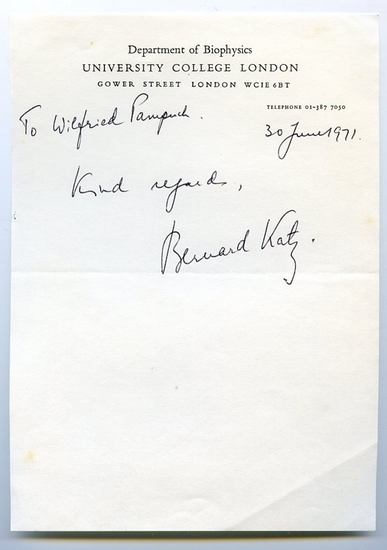 Department of Biophysics
UNIVERSITY COLLEGE LONDON
GOWER STREET LONDON WC1E 6BT
TELEPHONE 01-387 7050
To Wilfried Pampuch.
30 June 1971.
Kind regards,
Bernard Katz.